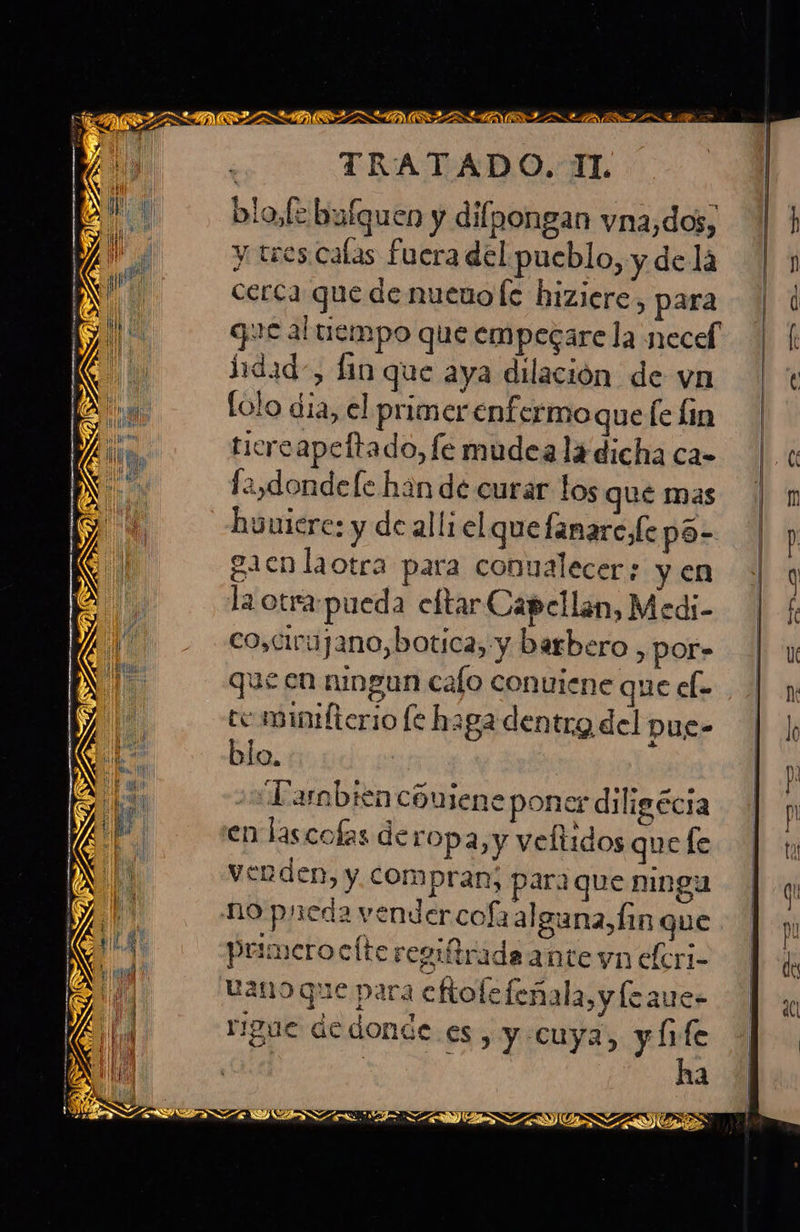 TRATADO. II.
blo, ſe buſquen y diſpongan vna, dos,
y tres caſas fuera del pueblo, y de la
cerca que de nueuo ſe hiziere, para
que al tiempo que empeçare la neceſ
ſidad, ſin que aya dilacion de vn
ſolo dia, el primer enfermo que ſe ſin
tiere apeſtado, ſe mude a la dicha ca-
ſa, donde ſe han de curar los que mas
huuiere: y de alli el que ſanare, ſe pō-
ga en la otra para conualecer: y en
la otra pueda eſtar Capellan, Medi-
co, cirujano, botica, y barbero, por-
que en ningun caſo conuiene que eſ-
te miniſterio ſe haga dentro del pue-
blo.
Tambien cōuiene poner diligēcia
en las coſas de ropa, y veſtidos que ſe
venden, y compran; para que ningu
no pueda vender coſa alguna, ſin que
primero eſte regiſtrada ante vn eſcri-
uano que para eſto ſe ſeñala, y ſe aue-
rigue de donde es, y cuya, y ſi ſe
ha